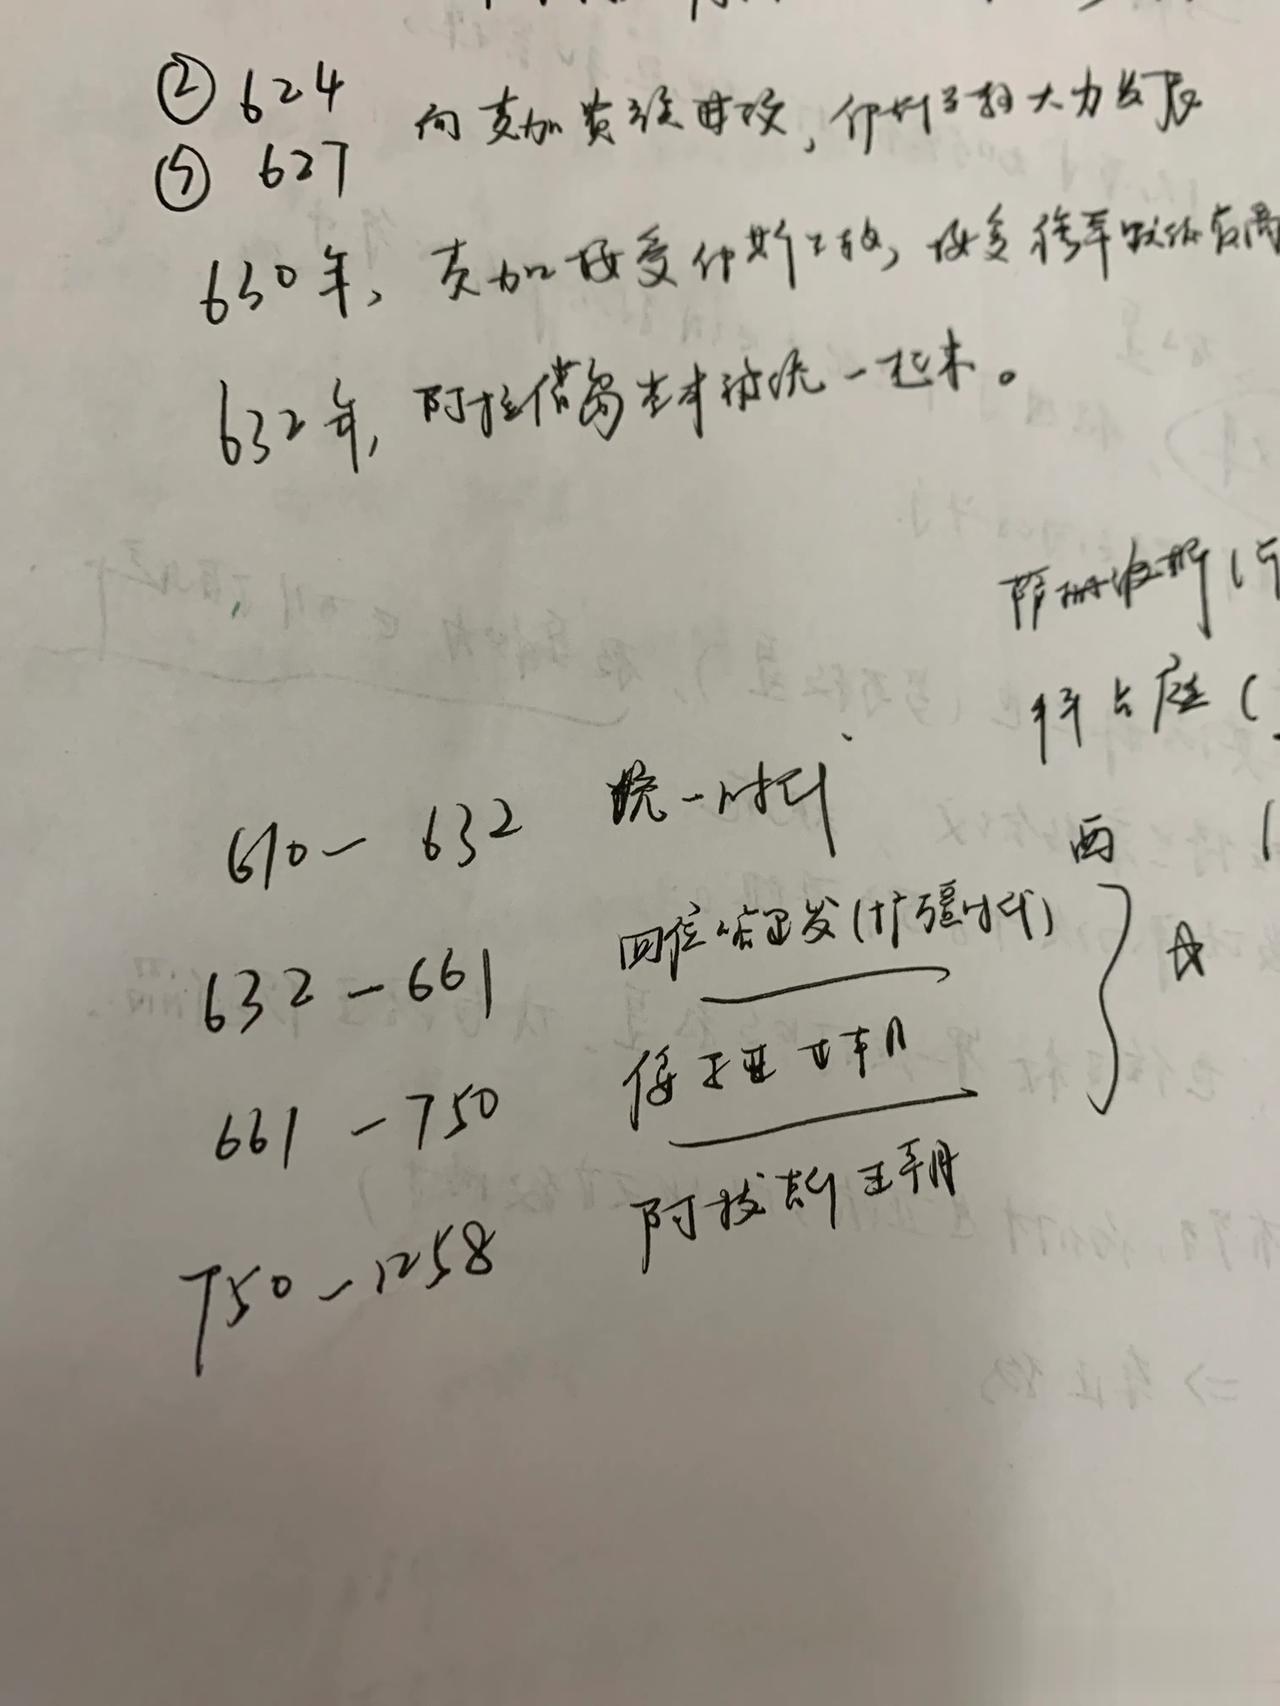 ② 624
向麦加贵族进攻，伊斯兰教大力发展
⑤ 627
630年，麦加接受伊斯兰教，接受穆罕默德
632年，阿拉伯岛基本被统一起来。
萨珊波斯（
拜占庭（
610 — 632 统一时代
西
632 — 661 四位哈里发（扩疆时代）
661 — 750 倭马亚王朝
750 — 1258 阿拔斯王朝